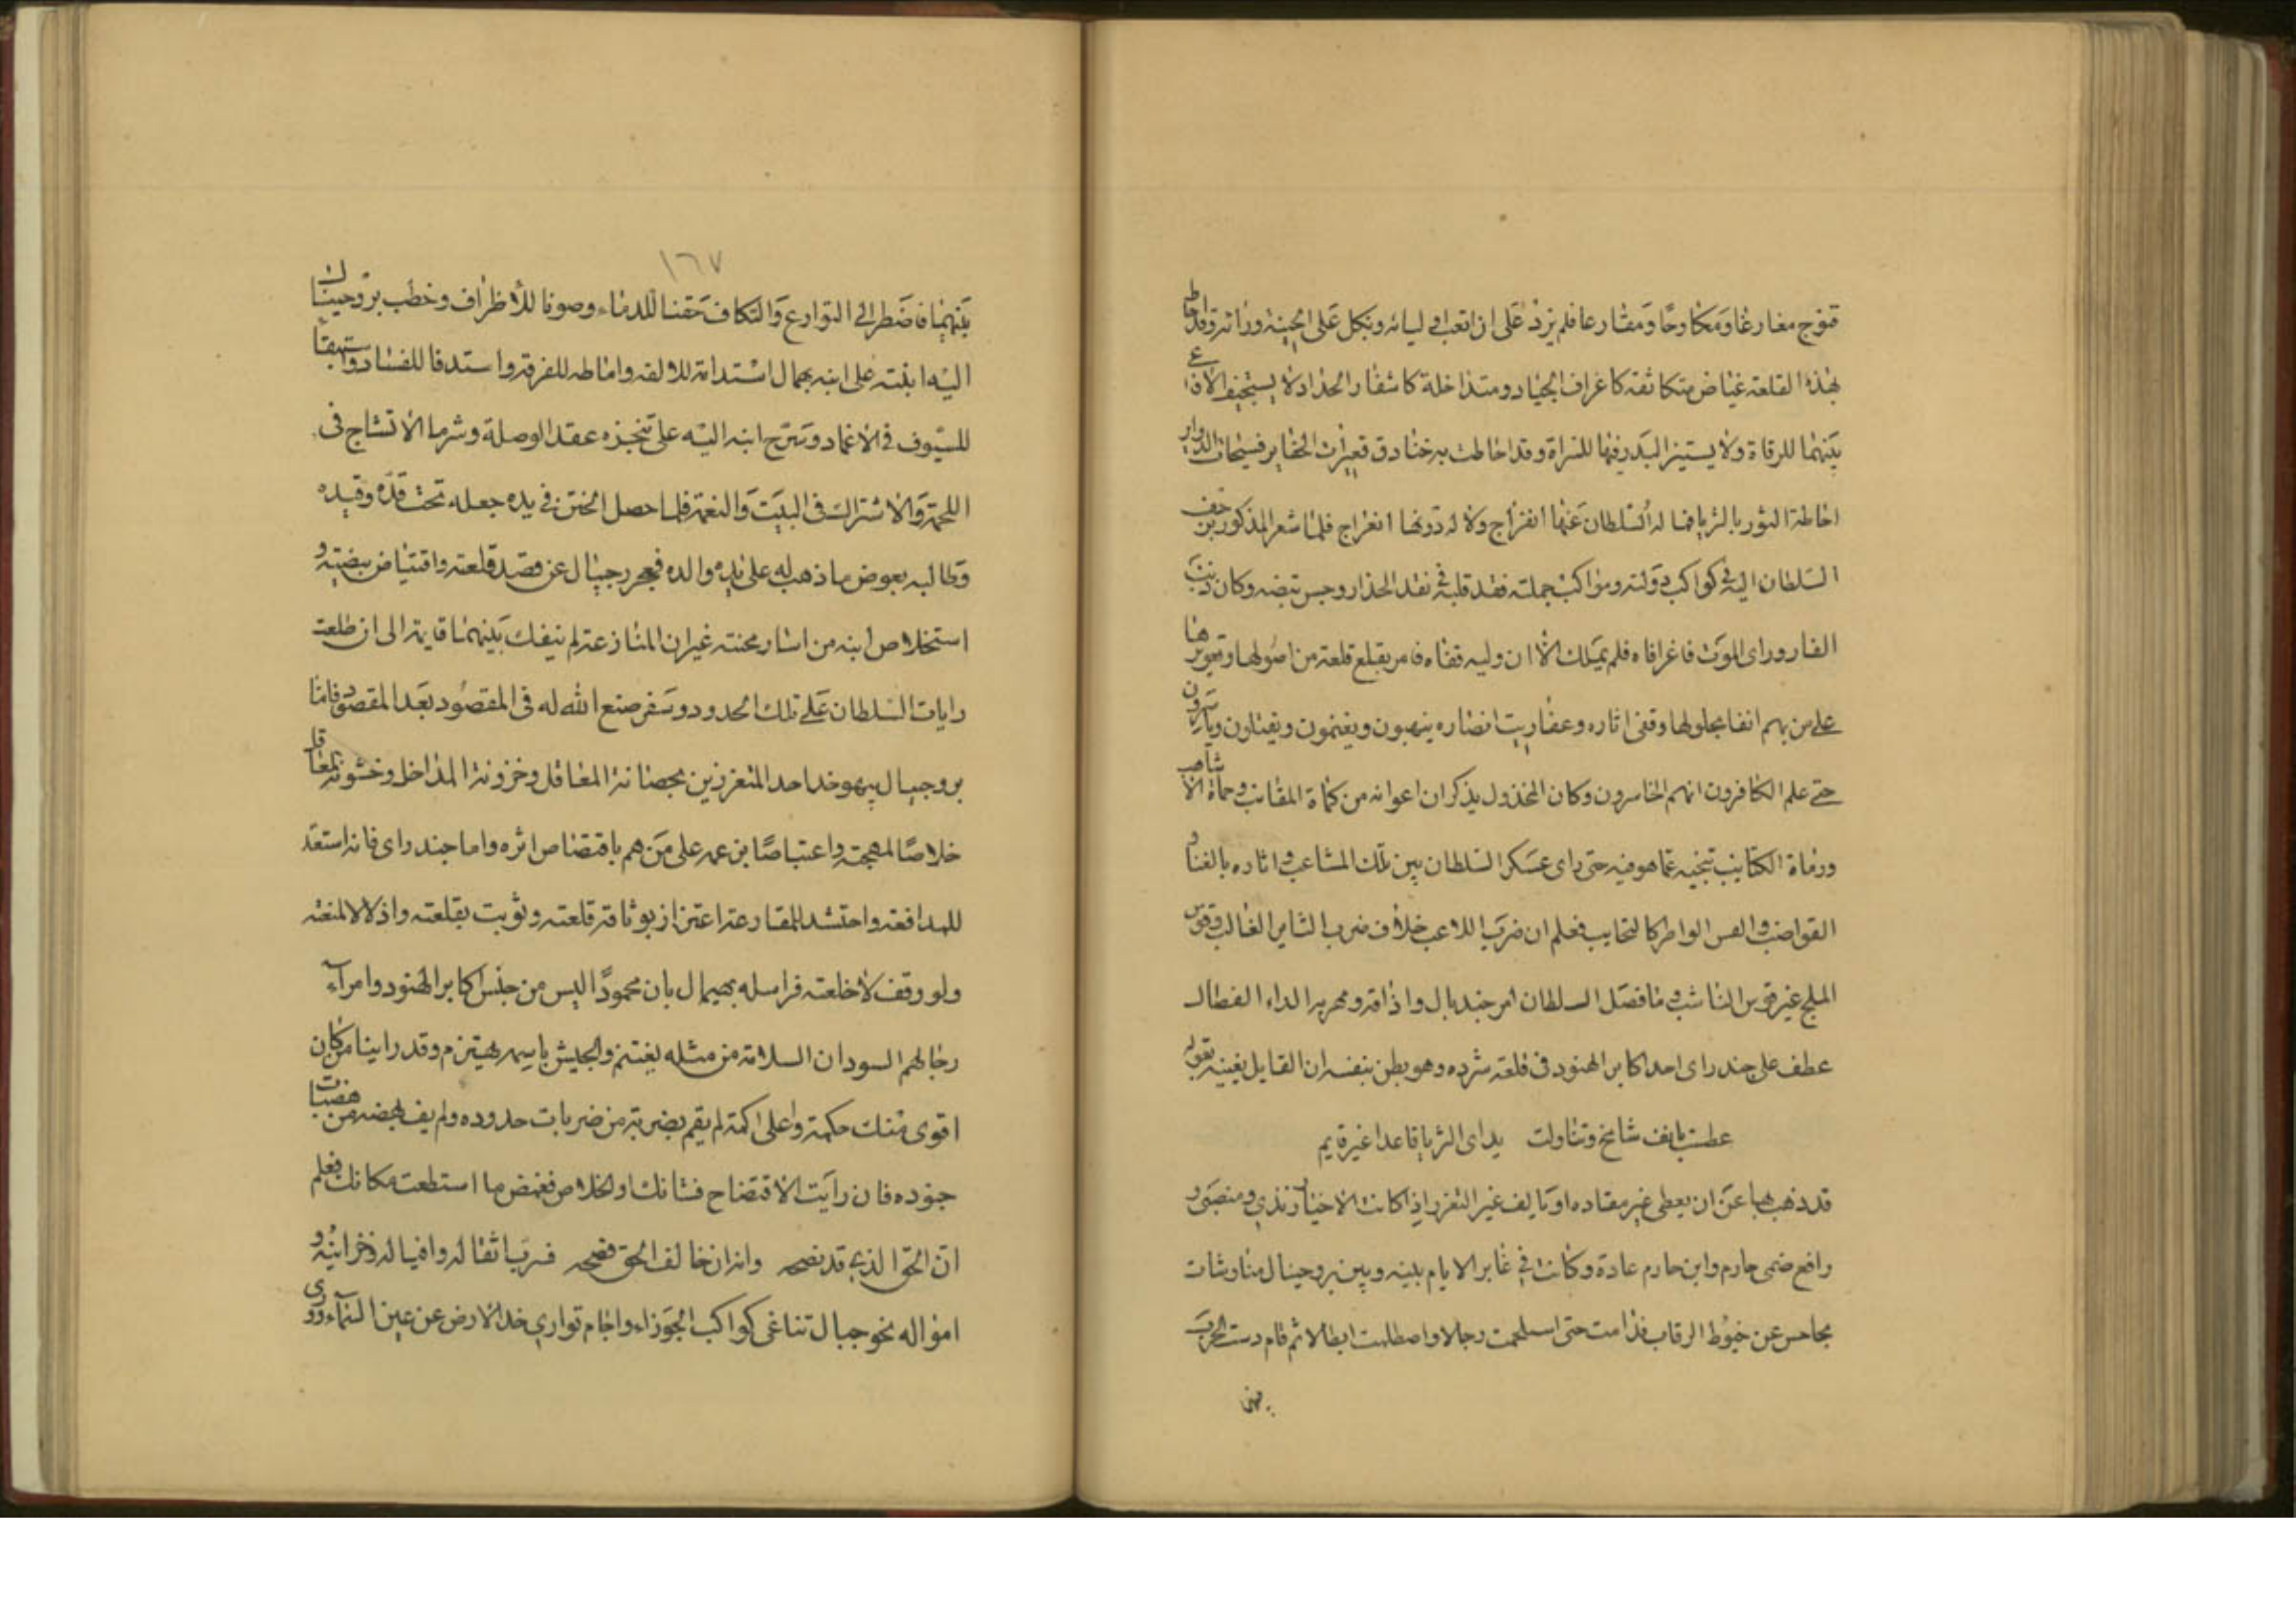 قنوج مغارعا ومكاوحا ومقارعا فلم يزد على ان اتعب اوليائه ونكل على الجبنة ورائه وقد احاط
بهذه القلعة غياض متكاثفة كاعراف الجياد ومتداخلة كاشفار الحداد لا يستجيز الافاعى
بينهما للرقاة ولا يستنير البدر فيها للسراة وقد احاطت به خنادق قعيرات الحفاير فسيحات الدواير
احاطة الثور بالثريا فما له السلطان عنها انفراج ولا له دونها انعراج فلما شعر المذكور بزحف
السلطان اليه فى كواكب دولته ومواكب جملته فقد قلبه فى نقد الحذار وجس نبضه وكان دنت
الفار وراى الموت فاغرا فاه فلم يملك الا ان وليه قفاه فامر بقلع قلعة من اصولها وتعويرها
على من بهم انفا بجلولها وقفى اثاره وعفاريت انصاره ينهبون ويغنمون ويقتلون وياسرون
حتى علم الكافرون انهم الخاسرون وكان المخذول يذكر ان اعوانه من كماة المقانب وحماة الاشاهب
ورماة الكتايب تنجيه عما هو فيه حتى راى عسكر السلطان بين تلك المشاعب واثاره بالقنا و
القواضب والقسى الواطر كالتحايب فعلم ان ضرب اللاعب خلاف ضرب الثاير الغالب وقوس
الملج غير قوس الناشب وما فصل السلطان امر جندبال واذاقه ومهربه الداء العضال
عطف على جندراى احد اكابر الهنود فى قلعة شرده وهو يظن بنفسه ان القايل يغنيه بقوله
عطست بانف شامخ وتناولت يداى الثريا قاعدا غير قايم
قد ذهب بها عن ان يعطى غير مقاده او يالف غير التغرر اذ كانت الاخيار نذى ومنصبى و
رافع ضمى حارم وابن حارم عادة وكانت فى غابر الايام بينه وبين بروجيبال مناوشات
بحاحس عن خيوط الرقاب فدامت حتى استلحمت رجالا واصطلمت ابطالا ثم قام دست الحرب
بينهما
١٦٧
بينهما فاضطر الى التوارع والتكاف حقنا للدماء وصونا للاطراف وخطب بروجيبال
اليه ابنته على ابنه بهمال استدامة للالفة واماطة للفرقة واستدفا للفساد واستبقا
للسيوف فى الاغماد وسرح ابنه اليه على تنجزه عقد الوصلة وشرما الا تشاج فى
اللحمة والاشتراك فى البيت والنعمة فلما حصل الختن فى يده جعله تحت قده وقيده
وطالبه بعوض ما ذهب له على يدى والده فعجز رجيبال عن قصد قلعته واقتياض بيضته و
استخلاص ابنه من اسار محنته غير ان المنازعة لم ينفك بينهما قايمة الى ان طلعت
رايات السلطان على تلك الحدود وسفر صنع الله له فى المقصود بعد المقصود فاما
بروجيبال بهوخد احد المتعززين بحصانة المعاقل وخزونة المداخل وخشونة المعاقل
خلاصا لمهجته واعتياصا بن عمه على من هم باقتناص اثره واما جندراى فانه استعد
للمدافعة واحتشد للمقارعة اعتزاز بوثاقة قلعته وثوبت بقلعته واذلالا لمنعته
ولو وقف لاخلعته فراسله بهيمال بان محمودا ليس من جنس اكابر الهنود وامراء
رجالهم السود ان السلامة من مثله يغتنم والجيش باسمه يهتزم وقد راينا من كان
اقوى منك حكمة واعلى اكمة لم يقم بضربة من ضربات حدوده ولم يف بهضه من هضبات
جنوده فان رايت الافتضاح فشانك او الخلاص فغمض ما استطعت مكانك فعلم
ان الحق الذى قد نصحه وانه ان خالف الحق فضحه فرب اثقاله وافياله وخزاينه و
امواله نحو جبال تناغى كواكب الجوزاء واجام توارى خد الارض عن عين السماء وورى